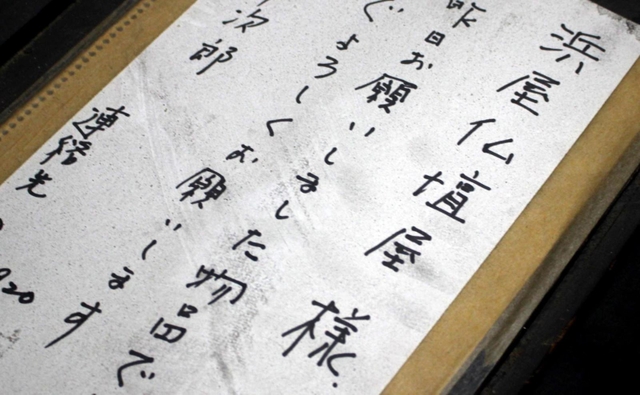 浜屋仏壇屋様
昨日お願いしました物品で
ぐよろしくお願いします
次郎
連絡先
920